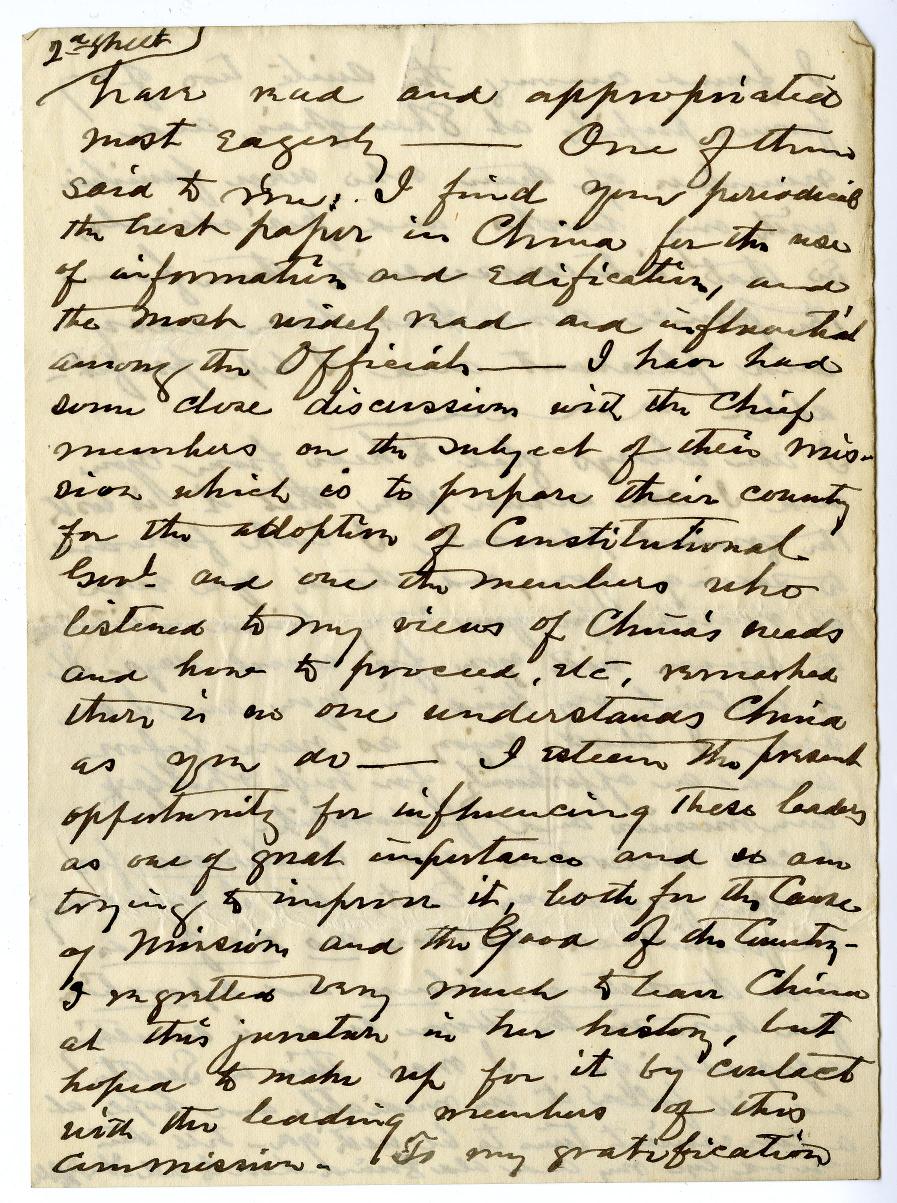 2d sheet
have read and appropriated
most eagerly — One of them
said to me: I find your periodical
the best paper in China for the use
of information and edification, and
the most widely read and influential
among the Officials — I have had
some close discussions with the Chief
members on the subject of their mis-
sion which is to prepare their country
for the adoption of Constitutional
Govt. and one the members who
listened to my views of China's needs
and how to proceed, etc, remarked
there is no one understands China
as you do — I esteem the present
opportunity for influencing these leaders
as one of great importance and so am
trying to improve it, both for the Cause
of Missions and the Good of the Country-
I regretted very much to leave China
at this juncture in her history, but
hoped to make up for it by contact
with the leading members of this
Commission - To my gratification